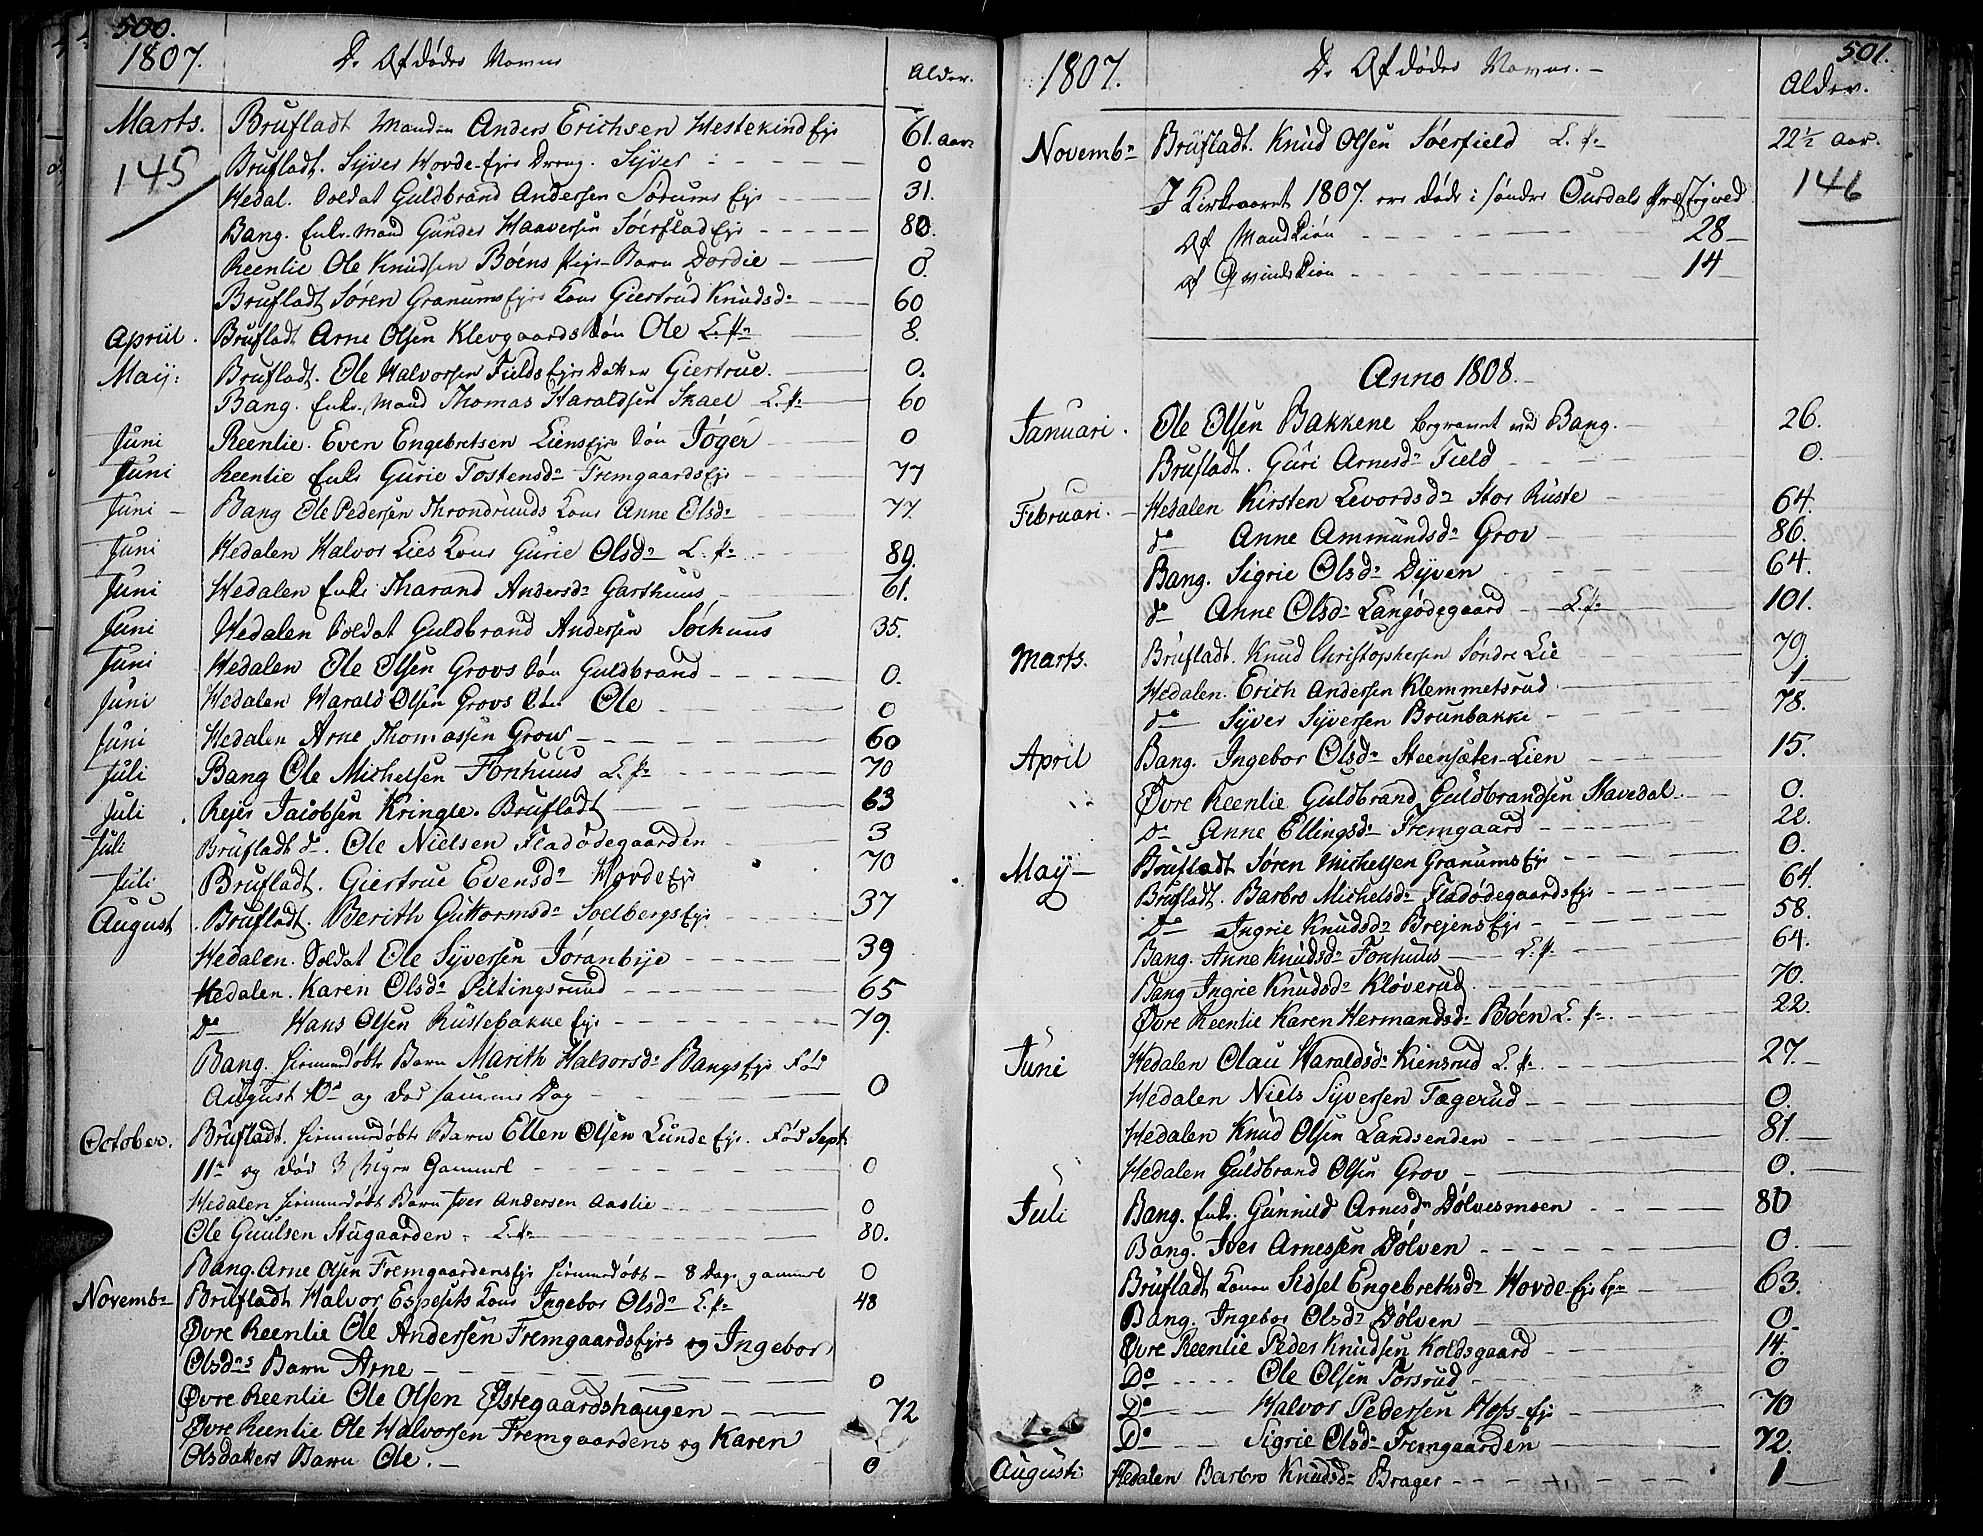 500.
1807. De Afdødes Navne Alder.
Marts. Brufladt Manden Anders Erichsen Westekind Eje 61. aar
145
Brufladt. Syver Hovde-Ejes Dreng. Syver 0
Hedal. Soldat Guldbrand Andersen Sørums Eje 31.
Bang. Enke-Mand Gunder Haaversen Søerflad Eje 80.
Reenlie Ole Knudsen Bøens Pige-Barn Dordie 0.
Brufladt Søren Granums Ejes Kone Giertrud Knudsdr 60
Apriil. Brufladt Arne Olsen Klevgaards Søn Ole 8.
Maij: Brufladt. Ole Halvorsen Fields Ejes Datter Giertrue. 0.
Bang. Enke-Mand Thomas Haraldsen Skael 60
Juni Reenlie. Even Engebretsen Liens Eje Søn Jøger 0
Juni Reenlie Enke Gurie Tostensdr Fremgaards Eje 77
Juni Bang Ole Pedersen Throndrunds Kone Anne Olsdr 77.
Juni Hedalen Halvor Lies Kone Gurie Olsdr 80.
Juni Hedalen Enke Tharand Andersdr Garthuus 61.
Juni Hedalen Soldat Guldbrand Andersen 35.
Juni Hedalen Ole Olsen Grovs Søn Guldbrand 0.
Juni Hedalen Harald Olsen Grovs Søn Ole 0
Juni Hedalen Arne Thomassen Grov 60
Juli Bang Ole Michelsen Fonhuus 70
Juli Rejer Jacobsen Kringle. Brufladt 63
Juli Brufladt do. Ole Nielsen Fladødegaarden 3
Juli Brufladt. Giertrue Evensdr Hovde Eje 70
August Brufladt. Berith Guttormsdr Soelbergs Eje. 37
Hedalen. Soldat Ole Syversen Jøranbye 39
Hedalen. Karen Olsdr Piltingsruud 65
Do Hans Olsen Rustebakke Eje 79.
Bang. hiemmedøbt Barn Marith Halvorsdr Bangs Eje Fød
August 10de og død samme Dag 0
October. Brufladt. hiemmedøbt Barn Ellen Olsen Lunde Eje. Fød Sept:
11te og død 3 Uger Gammel 0
Hedalen hiemmedøbt Barn Iver Andersen Aaslie 0
Ole Guulsen Haugaarden 80.
Bang. Arne Olsen Fremgaardens Eje hiemmedøbt - 8 Dage gammel 0
Novembr Brufladt Halvor Espesets Kone Ingebor Olsdr 48
Øvre Reenlie Ole Andersen Fremgaards Ejes og Ingebor
Olsdrs Barn Arne 0
Øvre Reenlie Ole Olsen Østegaardshaugen 72
Øvre Reenlie Ole Halvorsen Fremgaardens og Karen
Olsdatters Barn Ole. 0
501.
1807. De Afdødes Navne. Alder.
Novembr Brufladt. Knud Olsen Søerfield 22½ aar.
146
I Kirkeaaret 1807. ere døde i søndre Ourdals Præstegield
Af Mandkiøn 28
af Qvindekiøn 14
Anno 1808.
Januari. Ole Olsen Bakkene begravet ved Bang. 26.
Brufladt. Guri Arnesdr Field 0.
Februari. Hedalen Kirsten Levordsdr Stor Ruste 64.
do Anne Ammundsdr Grov 86.
Bang. Sigrie Olsdr Dyven 64.
do Anne Olsdr Langødegaard 101.
Marts. Brufladt. Knud Christophersen Søndre Lie 79.
Hedalen. Erich Andersen Klemmetsrud 1
do Syver Syversen Brunbakke 78.
April Bang. Ingebor Olsdr Steensæter-Lien 15.
Øvre Reenlie Guldbrand Guldbrandsen Skavedal. 0.
Do Anne Ellingsdr Fremgaard 22.
Maij Brufladt Søren Michelsen Granums Eje 0.
Brufladt. Barbro Michelsdr Fladødegaards Eje 64.
Do Ingrie Knudsdr Brejens Eje 58.
Bang. Anne Knudsdr Fonhuus 64.
Bang Ingrie Knudsdr Kløverud 70.
Øvre Reenlie Karen Hermandsdr Bøen 22.
Juni Hedalen Olau Haraldsdr Kiensrud 27.
Hedalen Niels Syversen Tægerud 0.
Hedalen Knud Olsen Landsenden 81.
Hedalen Guldbrand Olsen Grov 0.
Juli Bang. Enke. Gunnild Arnesdr Dølvesmoen 80
Bang. Iver Arnessen Dølven 0.
Brufladt Konen Sidsel Engebrethsdr Hovde-Ejes 63.
Bang. Ingebor Olsdr Dølven 0
Øvre Reenlie Peder Knudsen Koldsgaard 14.
Do Ole Olsen Torsrud 0
Do Halvor Pedersen Hofs-Eje 70
Do Sigrie Olsdr Fremgaarden 72.
Augusti Hedalen Barbro Knudsdr Brager 1